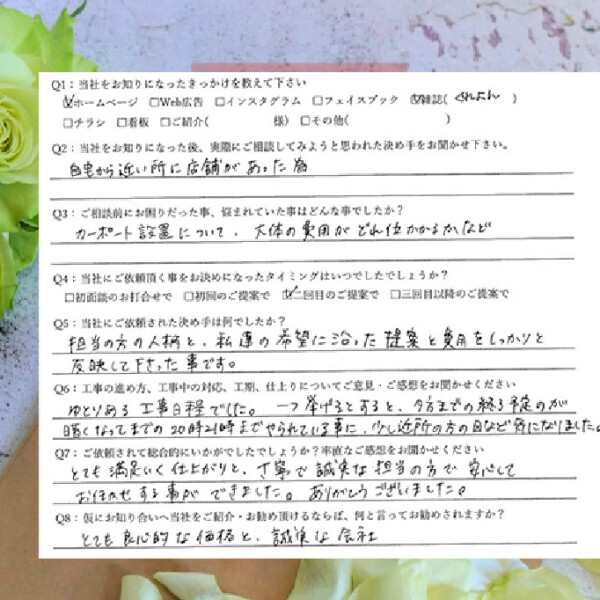 Q1：当社をお知りになったきっかけを教えて下さい
☑ホームページ □Web広告 □インスタグラム □フェイスブック ☑雑誌( くれよん )
□チラシ □看板 □ご紹介( 様) □その他( )
Q2：当社をお知りになった後、実際にご相談してみようと思われた決め手をお聞かせ下さい。
自宅から近い所に店舗があった為
Q3：ご相談前にお困りだった事、悩まれていた事はどんな事でしたか？
カーポート設置について、大体の費用がどれ位かかるかなど
Q4：当社にご依頼頂く事をお決めになったタイミングはいつでしたでしょうか？
□初面談のお打合せで □初回のご提案で ☑二回目のご提案で □三回目以降のご提案で
Q5：当社にご依頼された決め手は何でしたか？
担当の方の人柄と、私達の希望に沿った提案と費用をしっかりと
反映して下さった事です。
Q6：工事の進め方、工事中の対応、工期、仕上りについてご意見・ご感想をお聞かせください
ゆとりある工事日程でした。一つ挙げるとすると、夕方までの終る予定のが
暗くなってまでの20時21時までやられている事に、少し近所の方の目など気になりました。
Q7：ご依頼されて総合的にいかがでしたでしょうか？率直なご感想をお聞かせください
とても満足いく仕上がりと、丁寧で誠実な担当の方で安心して
お任かせする事ができました。ありがとうございました。
Q8：仮にお知り合いへ当社をご紹介・お勧め頂けるならば、何と言ってお勧めされますか？
とても良心的な価格と、誠実な会社